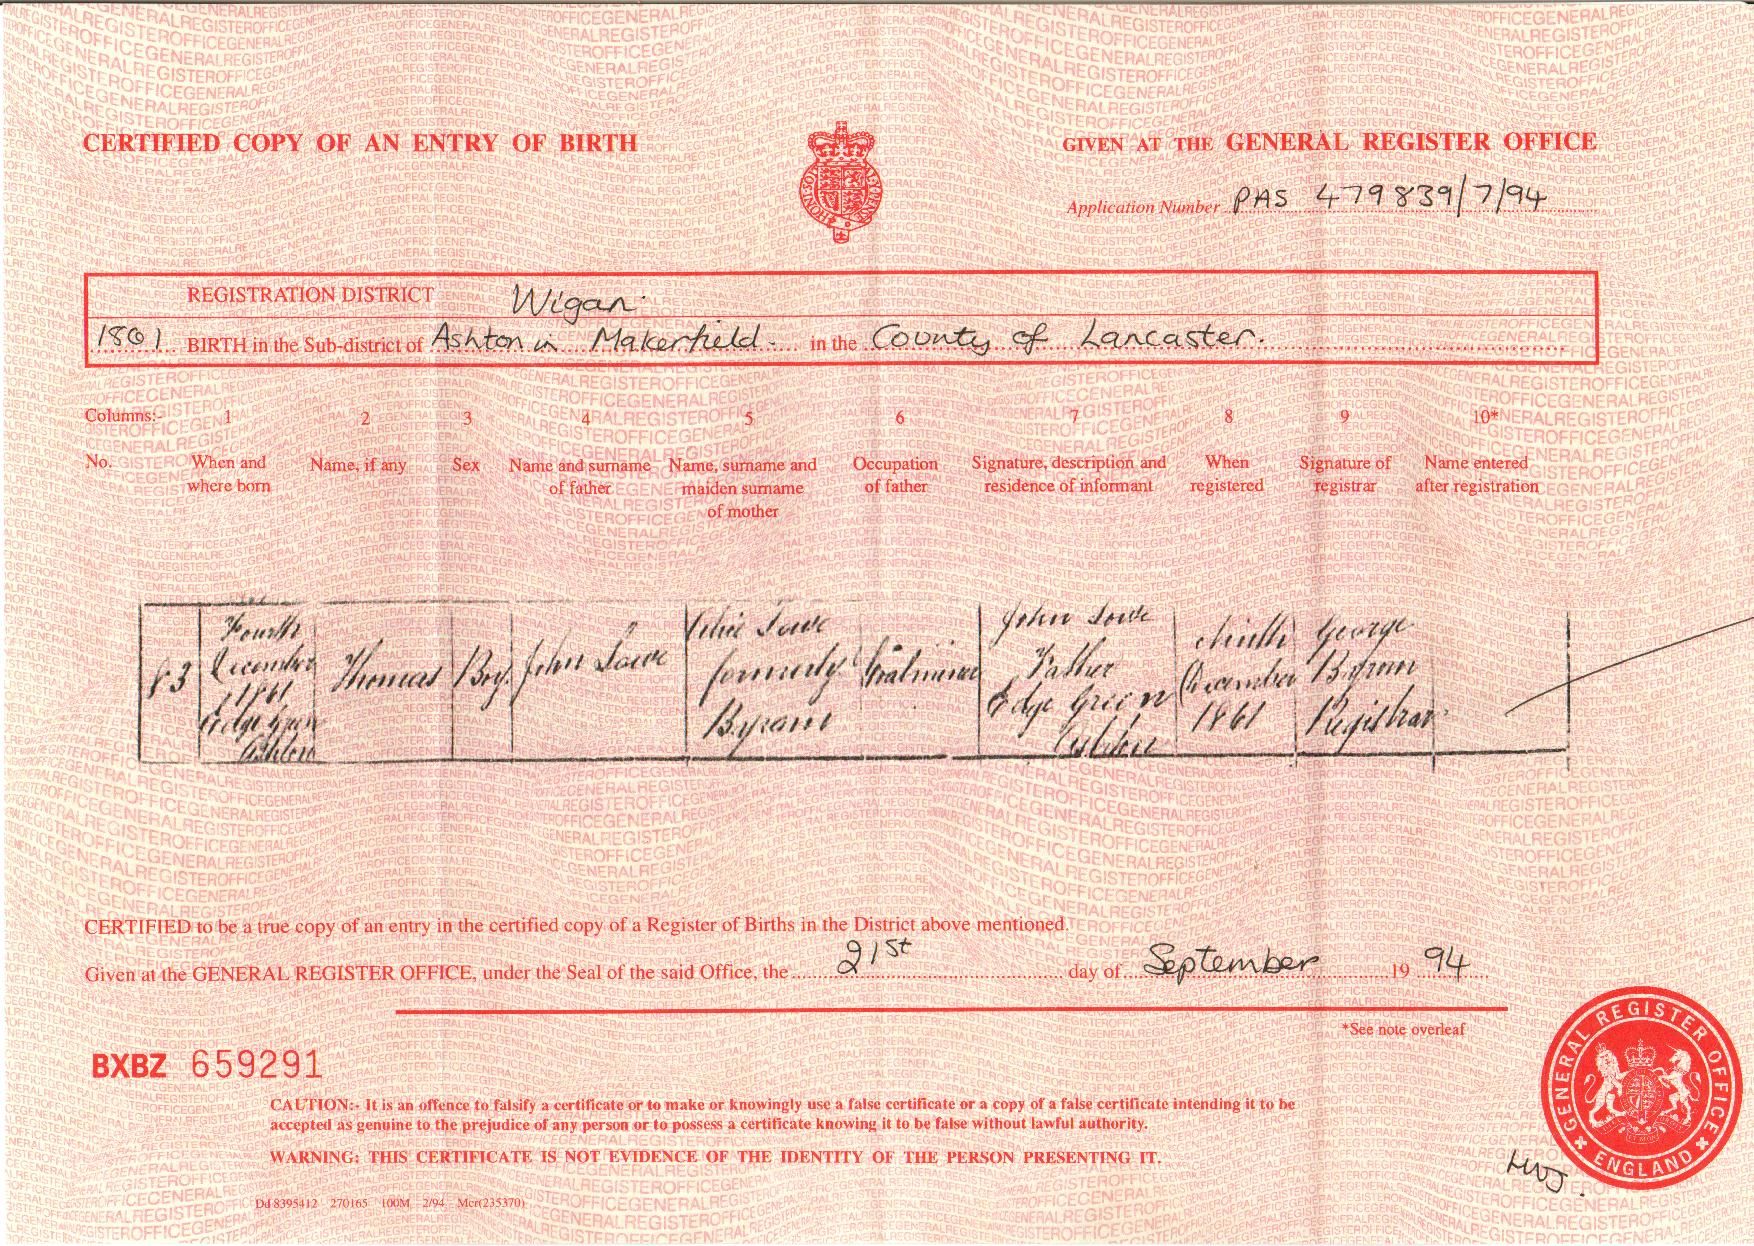 CERTIFIED COPY OF AN ENTRY OF BIRTH
GIVEN AT THE GENERAL REGISTER OFFICE
Application Number PAS 479839/7/94
REGISTRATION DISTRICT Wigan
BIRTH in the Sub-district of Ashton in Makerfield in the County of Lancaster.
Columns:- 1 2 3 4 5 6 7 8 9 10*
No. When and where born
Name, if any
Sex
Name and surname of father
Name, surname and maiden surname of mother
Occupation of father
Signature, description and residence of informant
When registered
Signature of registrar
Name entered after registration
83
Fourth
December
1861
Edge Green
Ashton
Thomas
Boy
John Lowe
Lowe
formerly
Byrom
Coalminer
John Lowe
Father
Edge Green
Ashton
Ninth
December
1861
George
Byrom
Registrar
CERTIFIED to be a true copy of an entry in the certified copy of a Register of Births in the District above mentioned.
Given at the GENERAL REGISTER OFFICE, under the Seal of the said Office, the 21st day of September 19 94
*See note overleaf
BXBZ 659291
CAUTION:- It is an offence to falsify a certificate or to make or knowingly use a false certificate or a copy of a false certificate intending it to be
accepted as genuine to the prejudice of any person or to possess a certificate knowing it to be false without lawful authority.
WARNING: THIS CERTIFICATE IS NOT EVIDENCE OF THE IDENTITY OF THE PERSON PRESENTING IT.
Dd 8395412 270165 100M 2/94 Mcr(235370)
GENERAL REGISTER OFFICE
ENGLAND